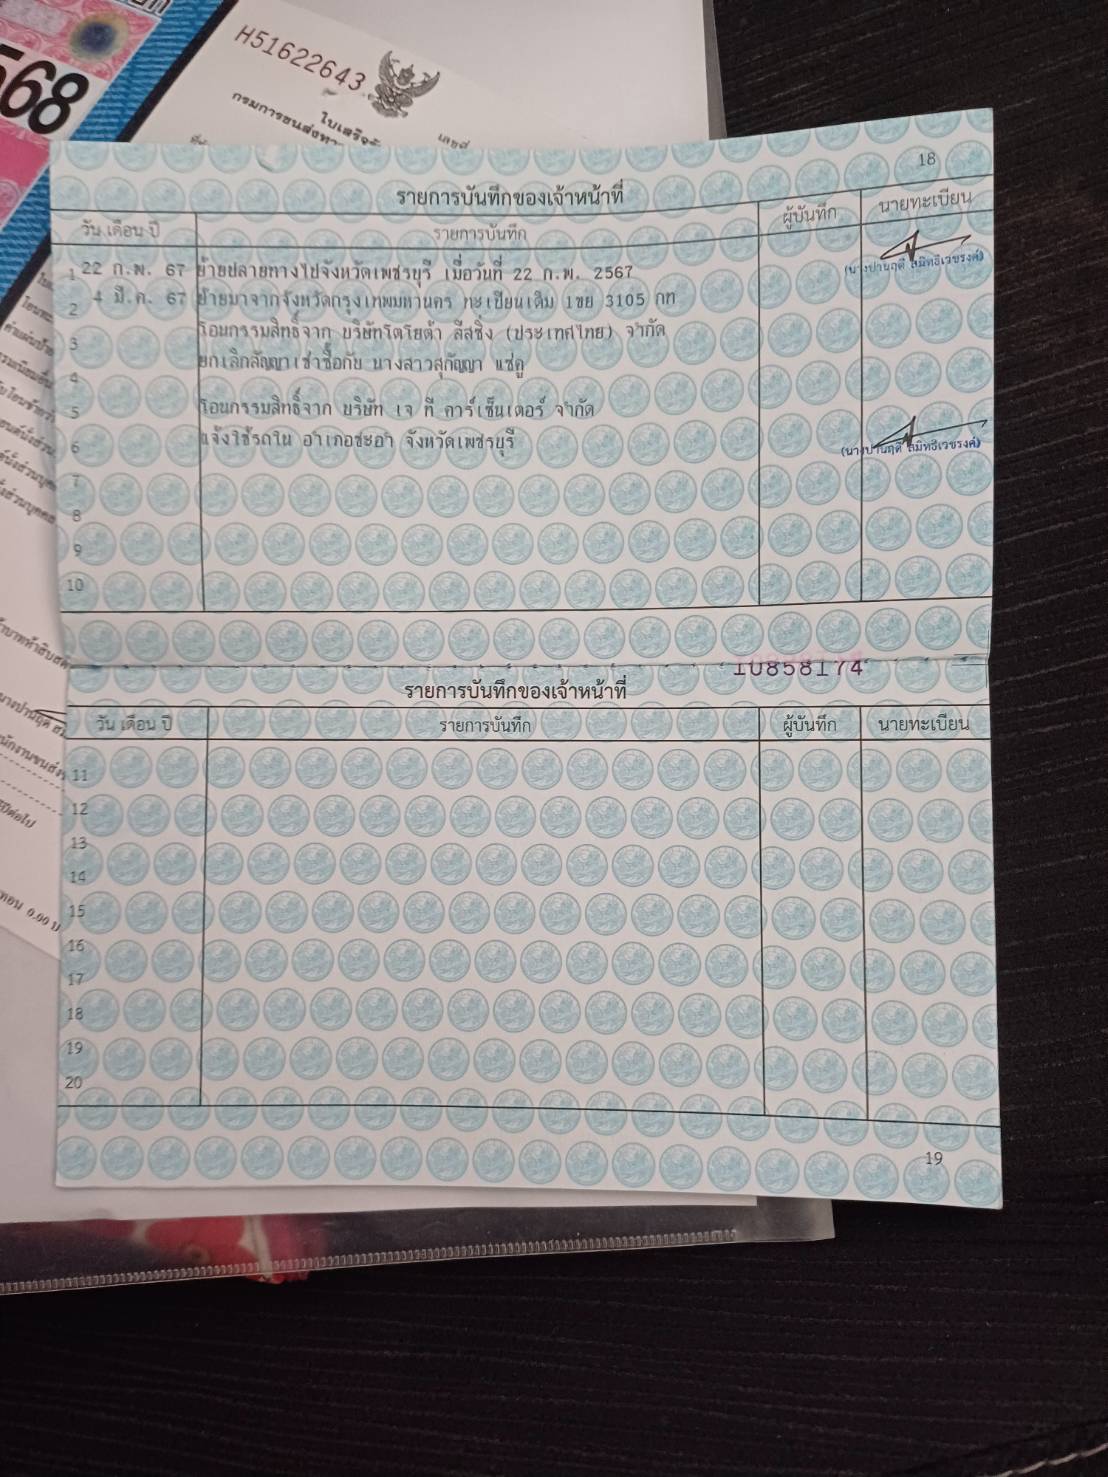 568
H51622643
ใบเสร็จรั
กรมการขนส่งทา
เลขที่
18
รายการบันทึกของเจ้าหน้าที่
วัน เดือน ปี รายการบันทึก ผู้บันทึก นายทะเบียน
1 22 ก.พ. 67 ย้ายปลายทางไปจังหวัดเพชรบุรี เมื่อวันที่ 22 ก.พ. 2567
(นางปานฤดี สมิทธิเวชรงค์)
2 4 มี.ค. 67 ย้ายมาจากจังหวัดกรุงเทพมหานคร ทะเบียนเดิม 1ขย 3105 กท
3 โอนกรรมสิทธิ์จาก บริษัทโตโยต้า ลีสซิ่ง (ประเทศไทย) จำกัด
4 ยกเลิกสัญญาเช่าซื้อกับ นางสาวสุกัญญา แซ่คู
5 โอนกรรมสิทธิ์จาก บริษัท เจ ที คาร์เซ็นเตอร์ จำกัด
6 แจ้งใช้รถใน อำเภอชะอำ จังหวัดเพชรบุรี
(นางปานฤดี สมิทธิเวชรงค์)
7
8
9
10
10858174
รายการบันทึกของเจ้าหน้าที่
วัน เดือน ปี รายการบันทึก ผู้บันทึก นายทะเบียน
11
12
13
14
15
16
17
18
19
20
19